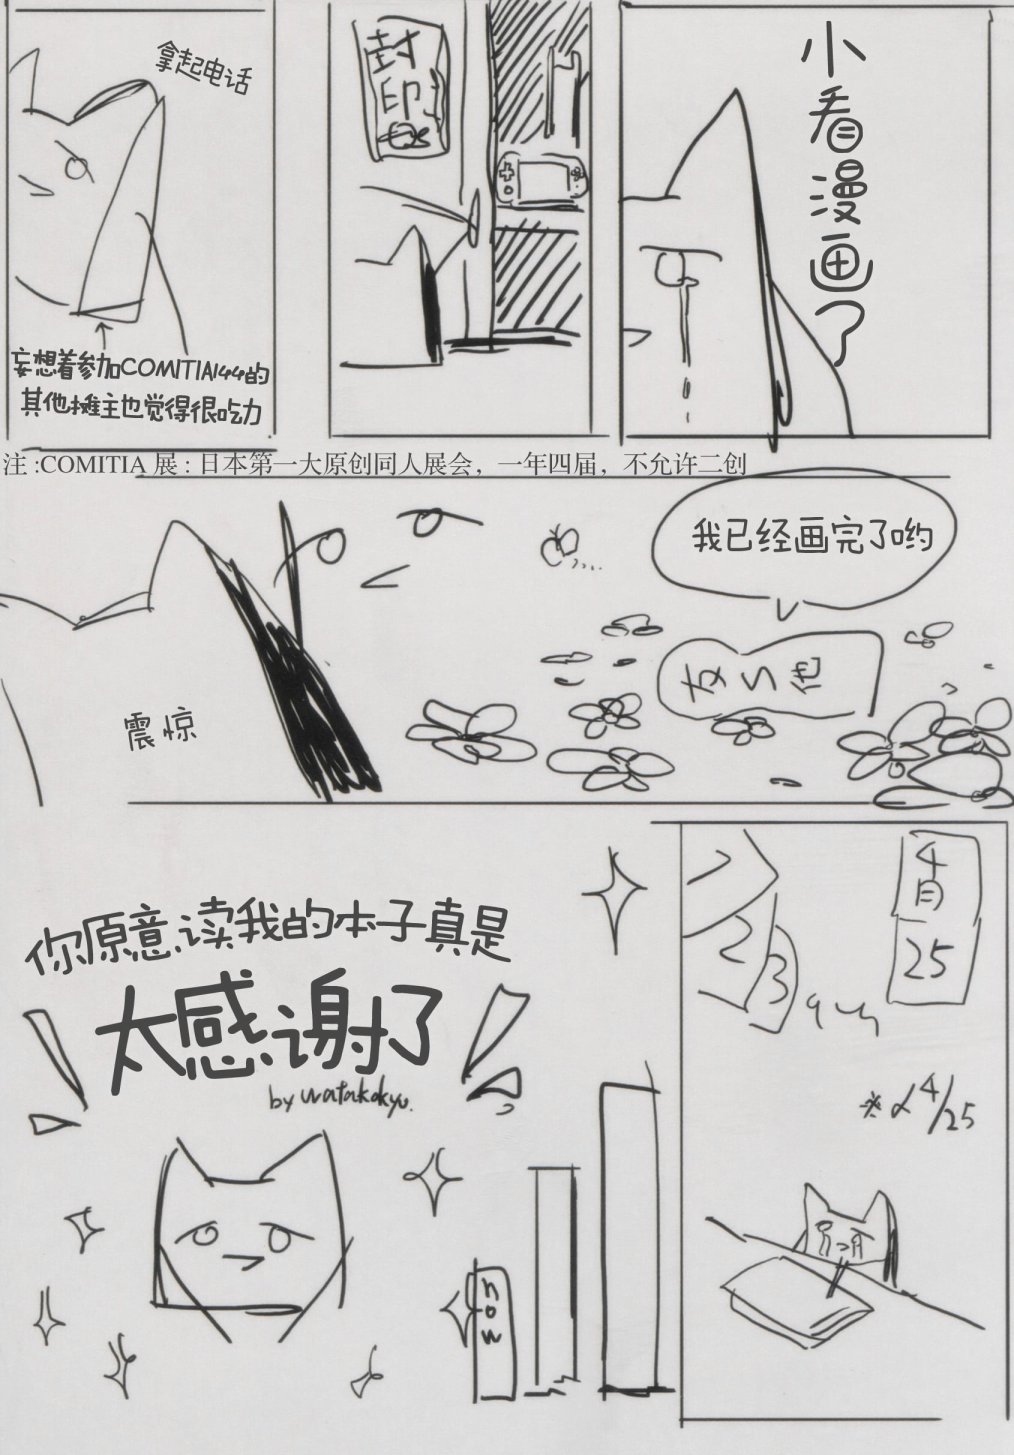 小看漫画？
封印
拿起电话
妄想着参加COMITIA144的
其他摊主也觉得很吃力
注:COMITIA 展：日本第一大原创同人展会，一年四届，不允许二创
我已经画完了哟
震惊
4月
25
23
※ 4/25
你愿意读我的本子真是
太感谢了
by watakokyu.
now